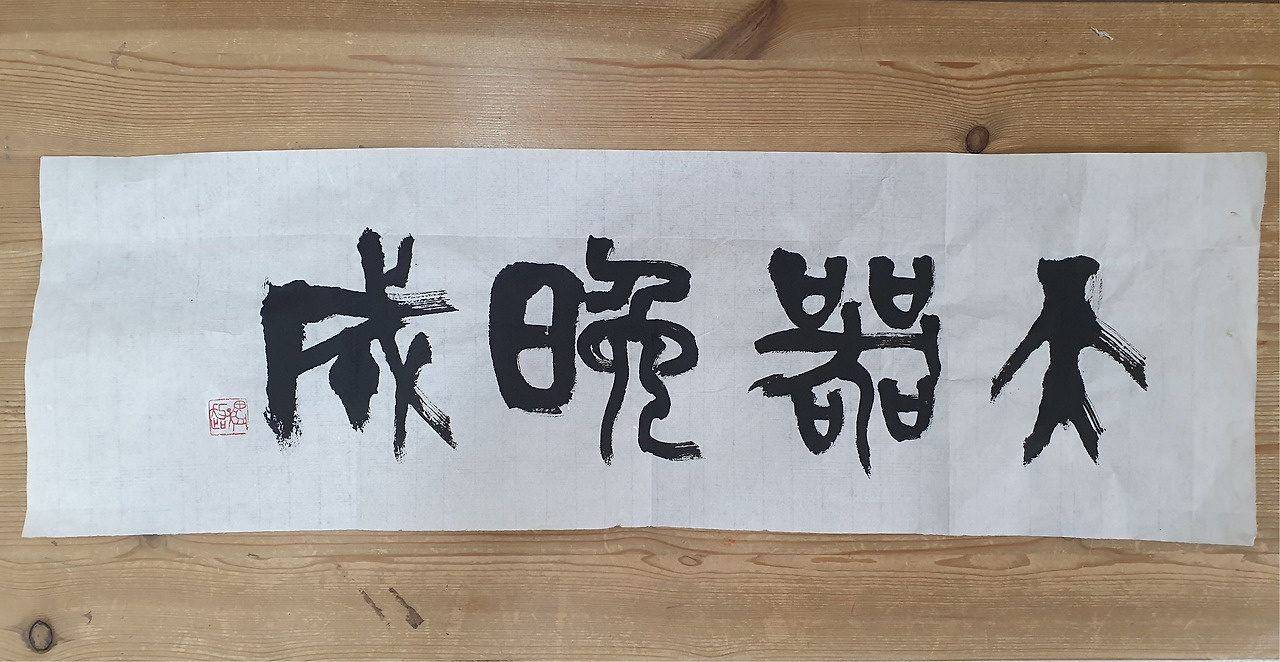 大器晚成